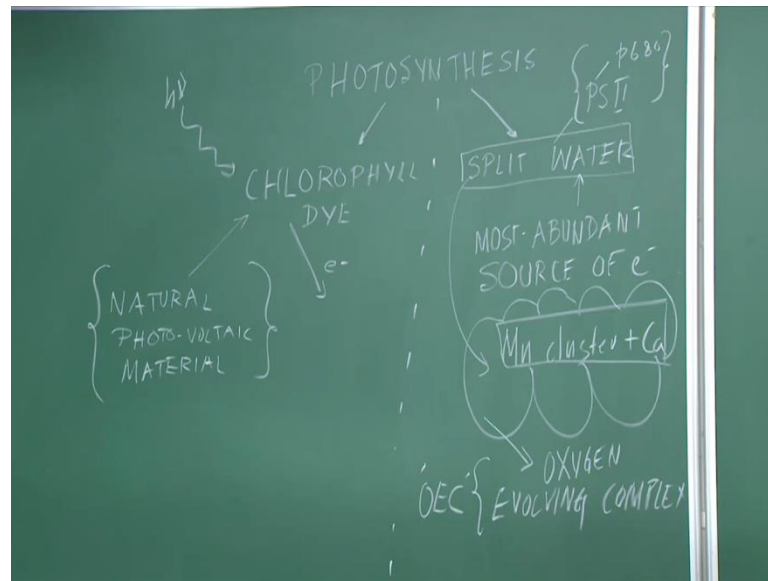 PHOTOSYNTHESIS
hν
CHLOROPHYLL
DYE
e-
{NATURAL
PHOTO-VOLTAIC
MATERIAL}
{P680
PSII}
SPLIT WATER
MOST-ABUNDANT
SOURCE OF e-
Mn cluster + Ca
'OEC' { OXYGEN
EVOLVING COMPLEX